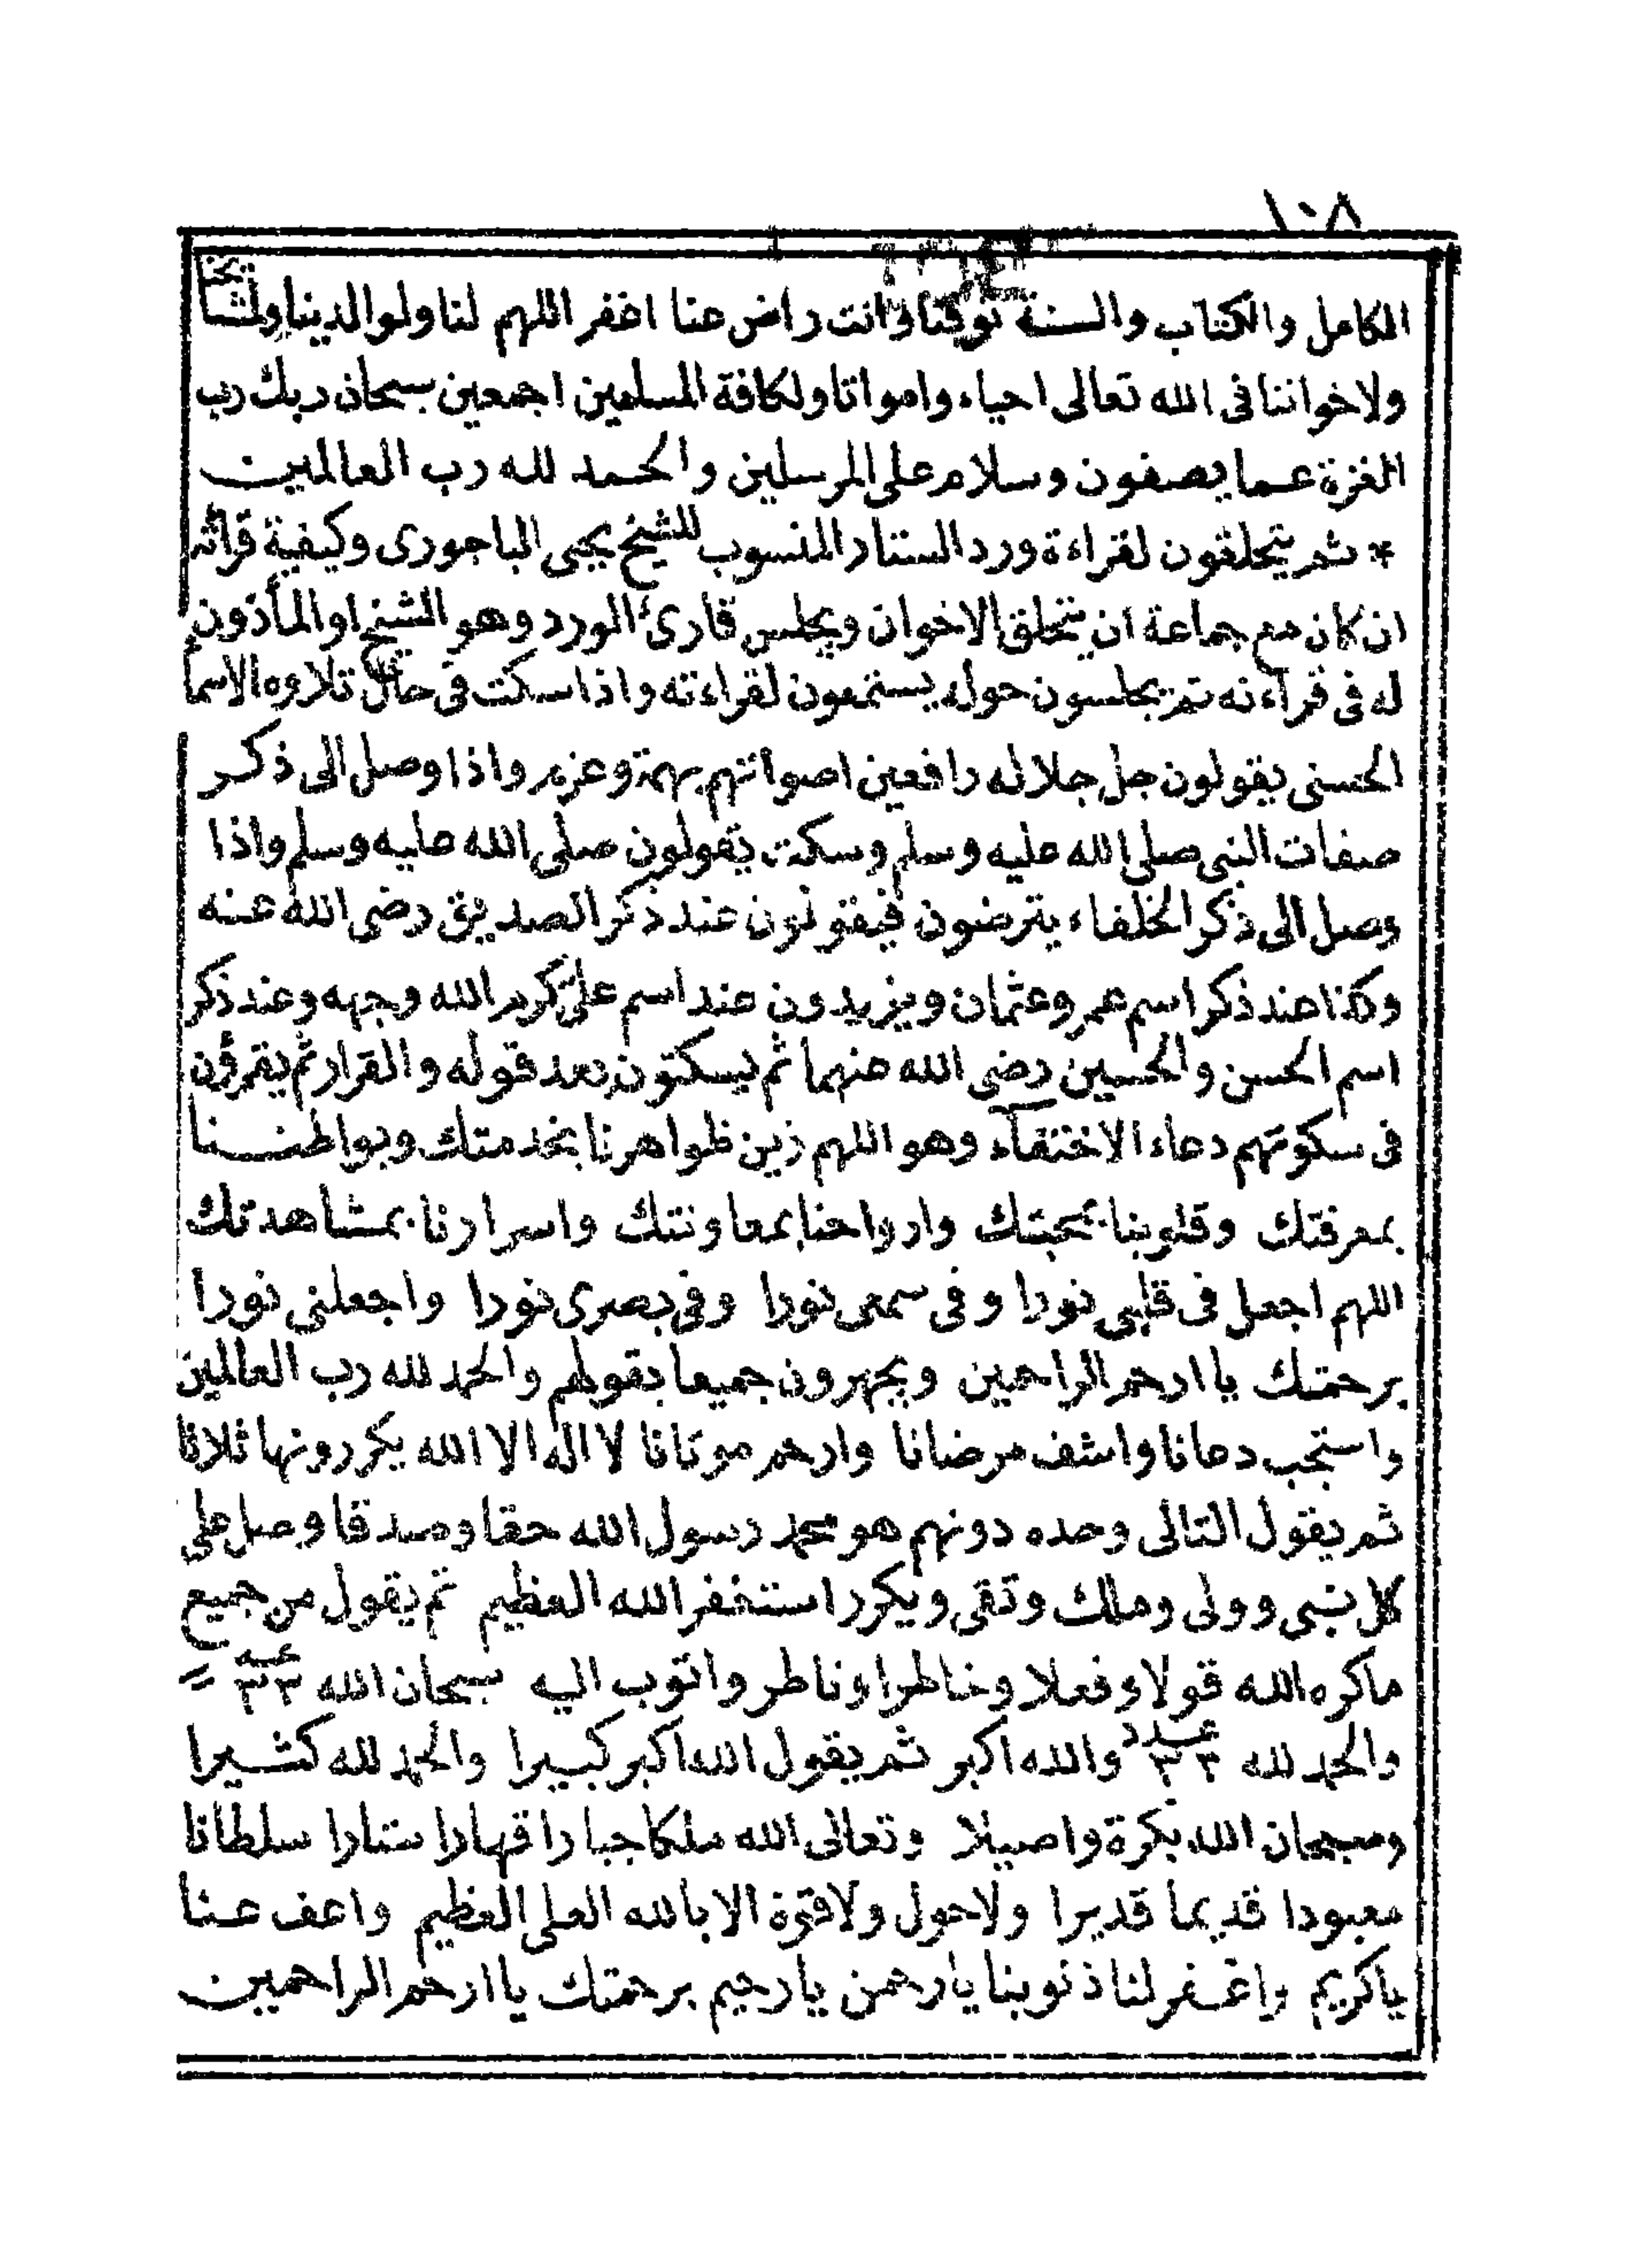 ١٠٨
الكامل والكتاب والسنة توفنا وانت راض عنا اغفر اللهم لنا ولوالدينا ولمشايخنا
ولاخواننا فى الله تعالى احياء وامواتا ولكافة المسلمين اجمعين سبحان ربك رب
العزة عما يصفون وسلام على المرسلين والحمد لله رب العالمين
* ثم يتحلقون لقراءة ورد الستار المنسوب للشيخ يحيى الباجورى وكيفية قرائته
ان كان مع جماعة ان يتحلق الاخوان ويجلس قارئ الورد وهو الشيخ او المأذون
له فى قراءته ثم يجلسون حوله يستمعون لقراءته واذا سكت فى حال تلاوه الاسما
الحسنى يقولون جل جلاله رافعين اصواتهم بهمة وعزم واذا وصل الى ذكر
صفات النبى صلى الله عليه وسلم وسكت يقولون صلى الله عليه وسلم واذا
وصل الى ذكر الخلفاء يترضون فيقولون عند ذكر الصديق رضى الله عنه
وكذا عند ذكر اسم عمر وعثمان ويزيدون عند اسم على كرم الله وجهه وعند ذكر
اسم الحسن والحسين رضى الله عنهما ثم يسكتون بعد قوله والقرار ثم يقرؤن
فى سكوتهم دعاء الاختفاء وهو اللهم زين ظواهرنا بخدمتك وبواطننا
بمعرفتك وقلوبنا بمحبتك وارواحنا بمعاونتك واسرارنا بمشاهدتك
اللهم اجعل فى قلبى نورا وفى سمعى نورا وفى بصرى نورا واجعلنى نورا
برحمتك يا ارحم الراحمين ويجهرون جميعا بقولهم والحمد لله رب العالمين
واستجب دعانا واشف مرضانا وارحم موتانا لا اله الا الله يكررونها ثلاثا
ثم يقول التالى وحده دونهم هو محمد رسول الله حقا وصدقا وصل على
كل نبى وولى وملك وتقى ويكرر استغفر الله العظيم ثم يقول من جميع
ماكره الله قولا وفعلا وخاطرا وناظر واتوب اليه سبحان الله ٣٣
والحمد لله عدد ٣٣ والله اكبر ثم يقول الله اكبر كبيرا والحمد لله كثيرا
وسبحان الله بكرة واصيلا وتعالى الله ملكا جبارا قهارا ستارا سلطانا
معبودا قديما قديرا ولاحول ولاقوة الا بالله العلى العظيم واعف عنا
ياكريم واغفر لنا ذنوبنا يارحمن يارحيم برحمتك يا ارحم الراحمين